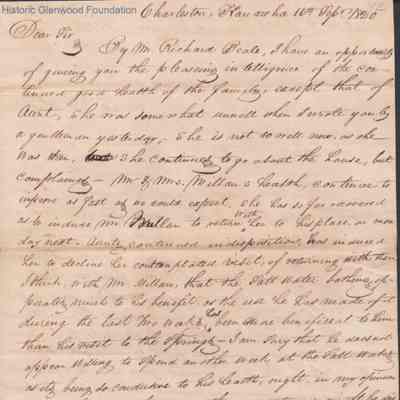 Historic Glenwood Foundation
Charleston, Kanawha 16th Sept 18
Dear Sir
By Mr Richard Neale, I have an opportunity
of giveing you the pleasing intelligence of the con-
tinued good health of the family, except that of
Aunt, She was somewhat unwell when I wrote you by
a gentleman yesterday, She is not so well now, as she
was then, She continues to go about the house, but
complained — Mr & Mrs. Millan's health, continues to
improve as fast as we could expect, She has so far recovered
as to induce Mr Millan to return with her to his place on mon
day next — Aunts continued indisposition, has induced
her to decline her contemplated visit, of returning with them
I think, with Mr Millan, that the Salt Water bathing, op-
perates much to his benefit, as the use he has made of it
during the last two weeks, has been more beneficial to him
than his visit to the Springs — I am sorry that he does not
appear willing to spend another week at the Salt Water
as its being so conducive to his health, ought, in my opinion